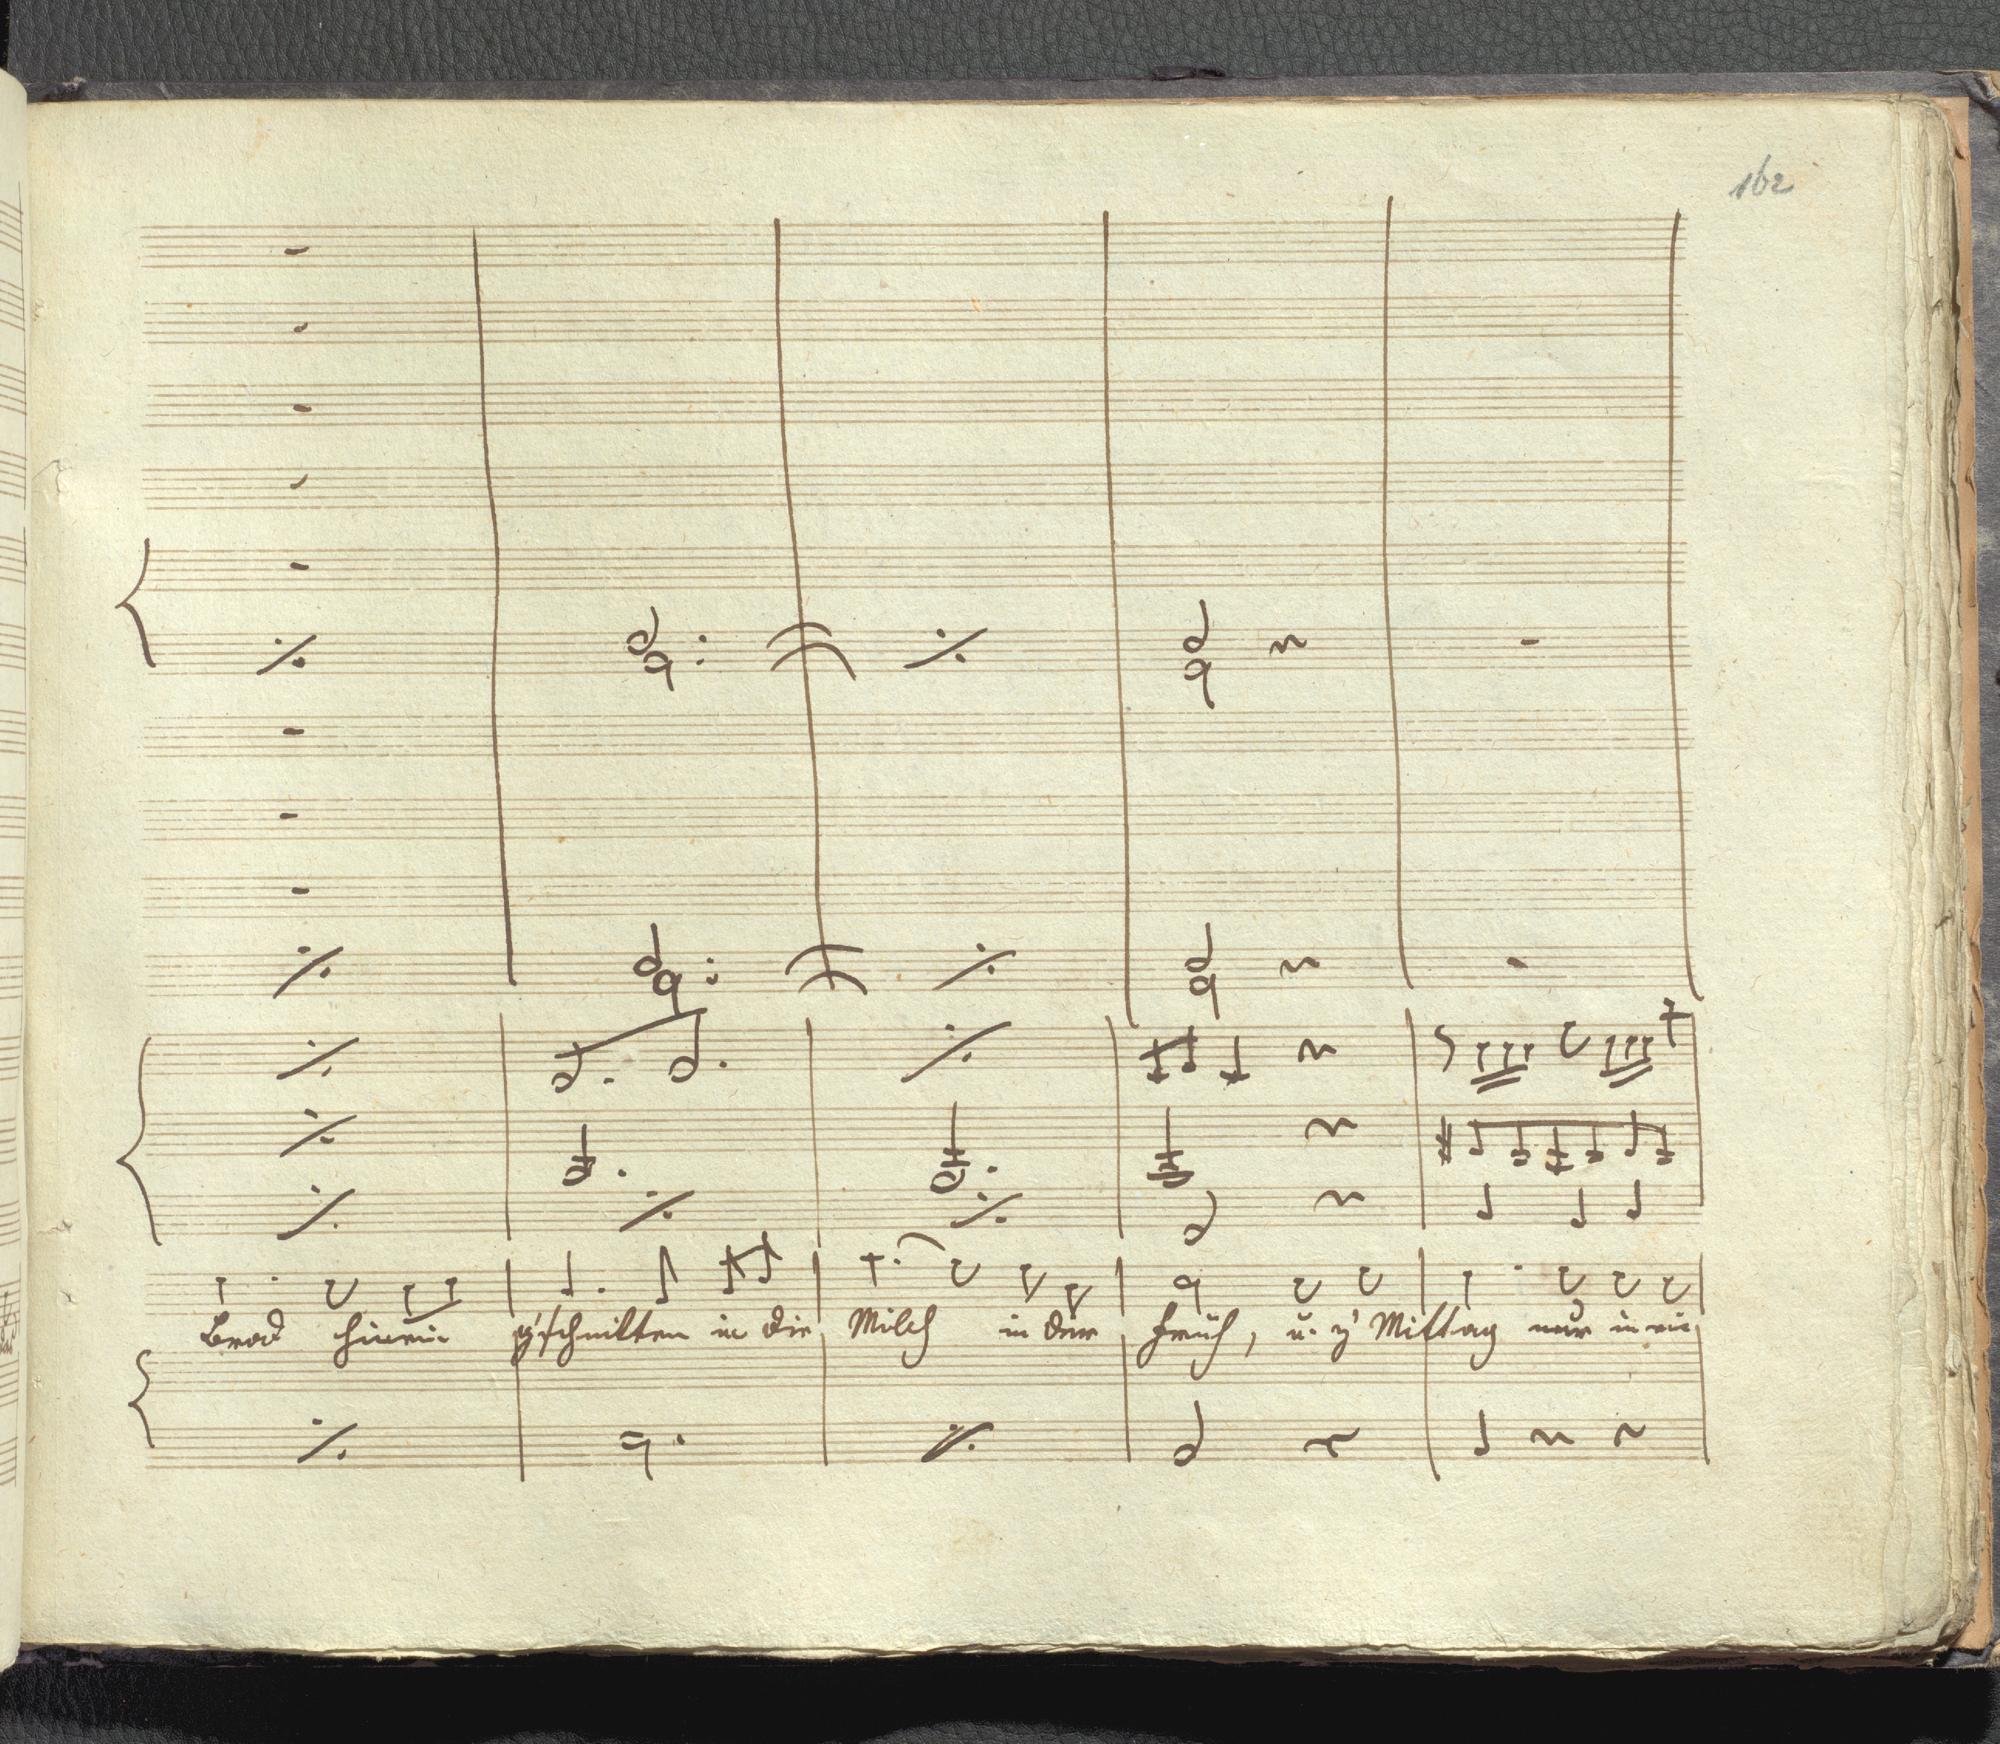 162
Brod hinein g'schnitten in die Milch in der Früh, u. z' Mittag nur in ein